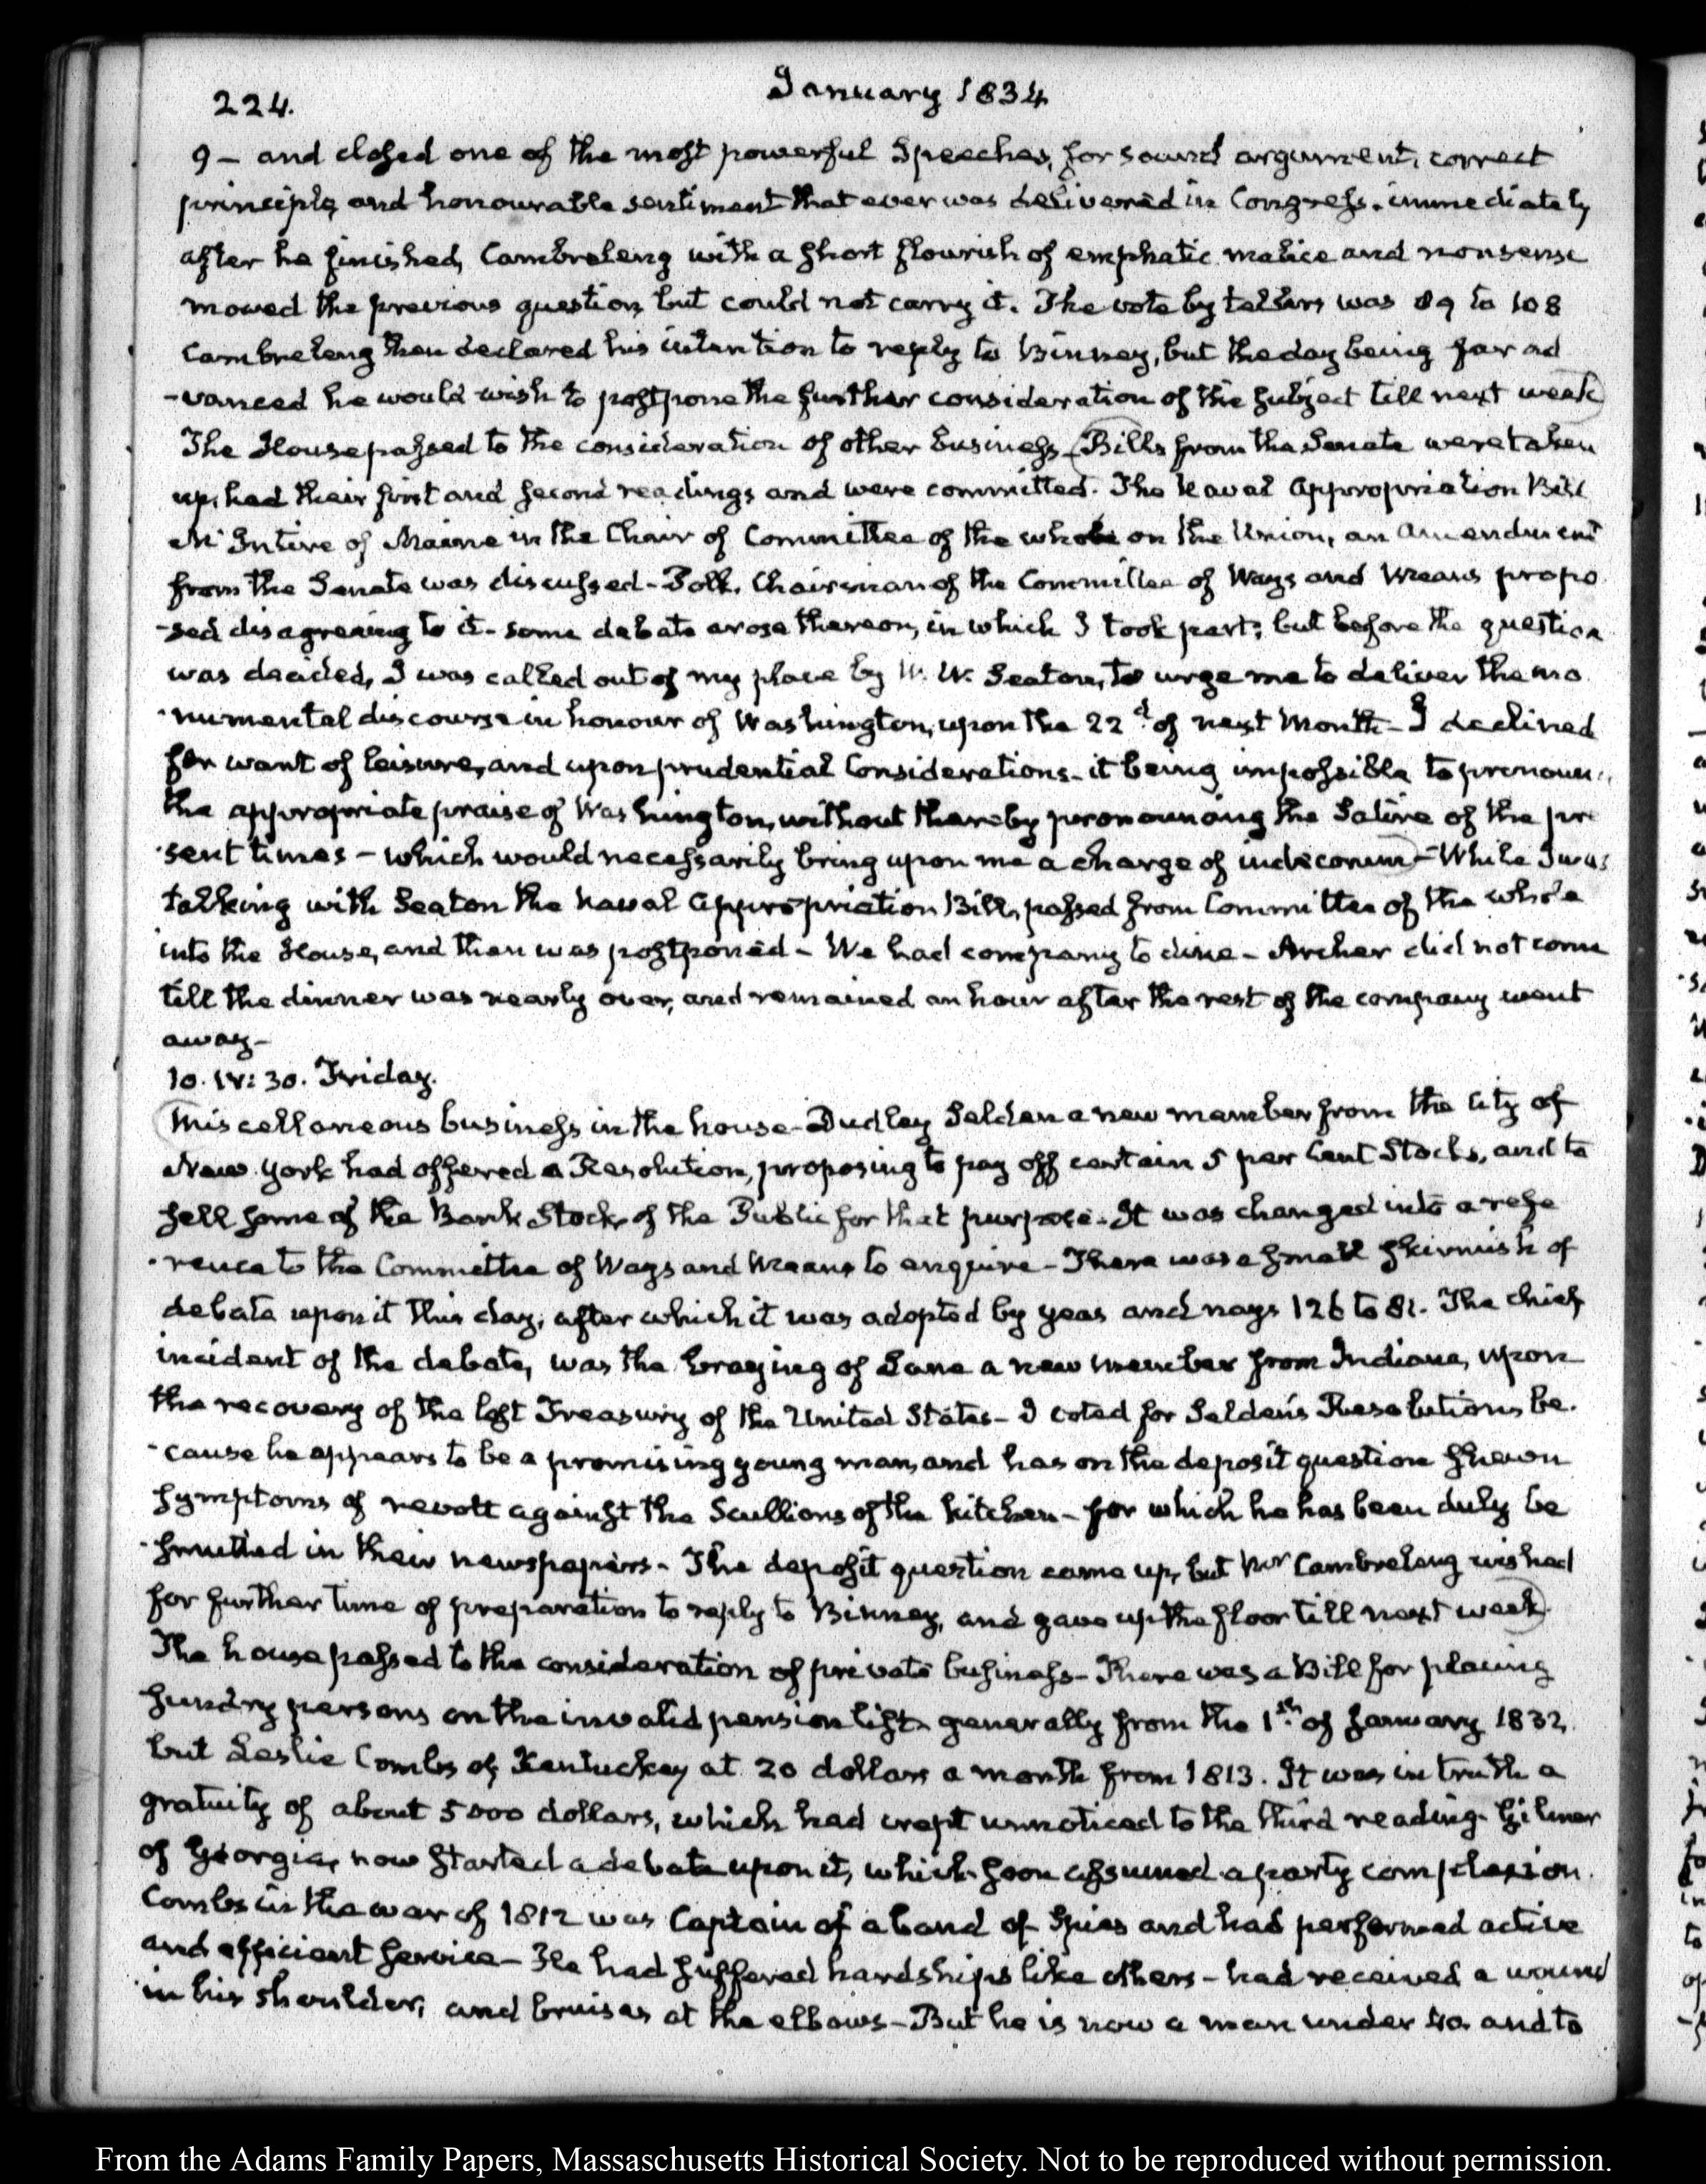 224.
January 1834
9 — and closed one of the most powerful Speeches, for sound argument, correct
principle, and honourable sentiment that ever was delivered in Congress. immediately
after he finished, Cambreleng with a short flourish of emphatic malice and nonsense
moved the previous question, but could not carry it. The vote by tellers was 89 to 108
Cambreleng then declared his intention to reply to Binney, but the day being far ad
-vanced he would wish to postpone the further consideration of the subject till next week
The House passed to the consideration of other business. Bills from the Senate were taken
up, had their first and second readings and were committed. The Naval Appropriation Bill
McIntire of Maine in the Chair of Committee of the whole on the Union, an amendment
from the Senate was discussed - Polk, Chairman of the Committee of Ways and Means propo
-sed disagreeing to it - some debate arose thereon, in which I took part; but before the question
was decided, I was called out of my place by W. W. Seaton, to urge me to deliver the mo
-numental discourse in honour of Washington, upon the 22d. of next Month - I declined
for want of leisure, and upon prudential Considerations - it being impossible to pronoun
the appropriate praise of Washington, without thereby pronouncing the Satire of the pre
-sent times - which would necessarily bring upon me a charge of indecorum - While I was
talking with Seaton the naval appropriation Bill, passed from Committee of the whole
into the House, and then was postponed - We had company to dine - Archer did not come
till the dinner was nearly over, and remained an hour after the rest of the company went
away -
10. IV: 30. Friday.
Miscellaneous business in the house - Dudley Selden a new member from the City of
New York had offered a Resolution, proposing to pay off certain 5 per Cent Stocks, and to
sell some of the Bank Stock of the Public for that purpose. It was changed into a refe
-rence to the Committee of Ways and Means to enquire - There was a small skirmish of
debate upon it this day; after which it was adopted by yeas and nays 126 to 81. The chief
incident of the debate, was the braying of Lane a new member from Indiana, upon
the recovery of the lost Treasury of the United States - I voted for Selden's Resolution, be.
-cause he appears to be a promising young man, and has on the deposit question shewn
symptoms of revolt against the Scullions of the kitchen - for which he has been duly be
-smutted in their newspapers - The deposit question came up, but Mr Cambreleng wished
for further time of preparation to reply to Binney, and gave up the floor till next week.
The house passed to the consideration of private business - There was a Bill for placing
sundry persons on the invalid pension list generally from the 1st. of January 1832,
but Leslie Combs of Kentucky at 20 dollars a month from 1813. It was in truth a
gratuity of about 5000 dollars, which had crept unnoticed to the third reading. Gilmer
of Georgia, now started a debate upon it, which soon assumed a party complexion.
Combs in the war of 1812 was Captain of a band of Spies and had performed active
and efficient service - He had suffered hardships like others - had received a wound
in his shoulder, and bruises at the elbows - But he is now a man under 40. and to
From the Adams Family Papers, Massachusetts Historical Society. Not to be reproduced without permission.